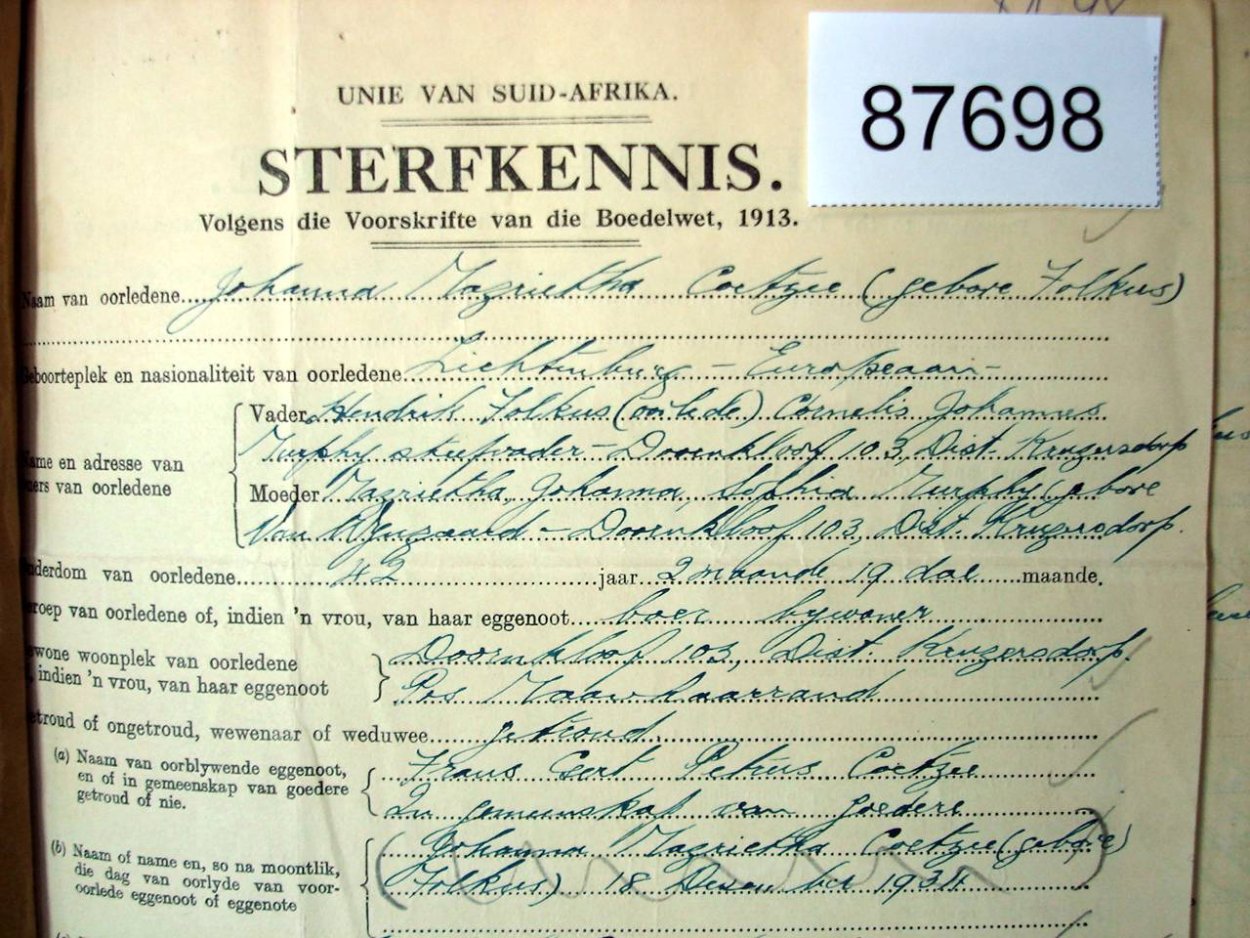 87698
UNIE VAN SUID-AFRIKA.
STERFKENNIS.
Volgens die Voorskrifte van die Boedelwet, 1913.
Naam van oorledene Johanna Magrietha Coetzee (gebore Folkus)
Geboorteplek en nasionaliteit van oorledene Lichtenburg - Europeaan -
Name en adresse van ouers van oorledene
Vader Hendrik Folkus (oorlede) Cornelis Johannes
Murphy stiefvader - Doornkloof 103, Dist. Krugersdorp
Moeder Magrietha, Johanna, Sophia Murphy (gebore
Van Wyngaard - Doornkloof 103, Dist. Krugersdorp.
Ouderdom van oorledene 42 jaar 2 maande 19 dae maande.
Beroep van oorledene of, indien 'n vrou, van haar eggenoot boer bywoner
Gewone woonplek van oorledene Doornkloof 103, Dist Krugersdorp.
of, indien 'n vrou, van haar eggenoot Pos Maanhaarrand
Getroud of ongetroud, wewenaar of weduwee getroud.
(a) Naam van oorblywende eggenoot, Frans Gert Petrus Coetzee
en of in gemeenskap van goedere In gemeenskap van goedere
getroud of nie.
(b) Naam of name en, so na moontlik, Johanna Magrietha Coetzee (gebore
die dag van oorlyde van voor- Folkus) 18 Desember 1934
oorlede eggenoot of eggenote